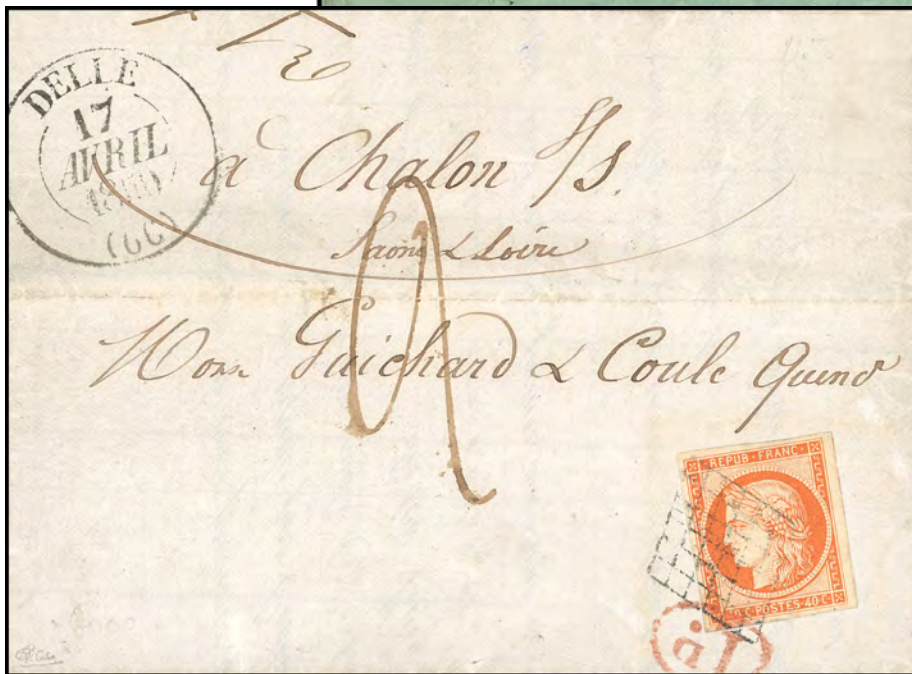 DELLE
17
AVRIL
(66)
à Chalon s/s.
Saone & Loire
Guichard & Coule
REPUB·FRANC·
40 C·POSTES·40·C
P.D